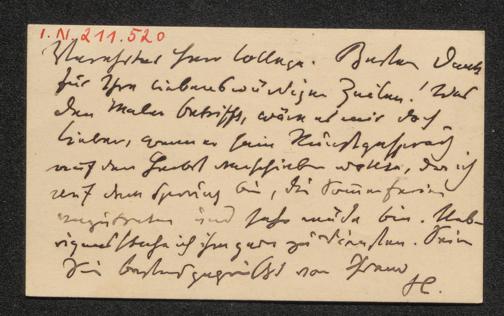 I.N. 211.520
Verehrter Herr College. Besten Dank
für Ihre liebenswürdigen Zeilen! Was
den Maler betrifft, wäre es mir doch
lieber, wenn er sein Kunstgespräch
auf den Herbst verschieben wollte, da ich
auf dem Sprung bin, die Sommerferien
anzutreten und sehr müde bin. Uebrigens
stehe ich Ihnen gern zu Diensten. Seien
Sie bestens gegrüßt von Ihrem
H.